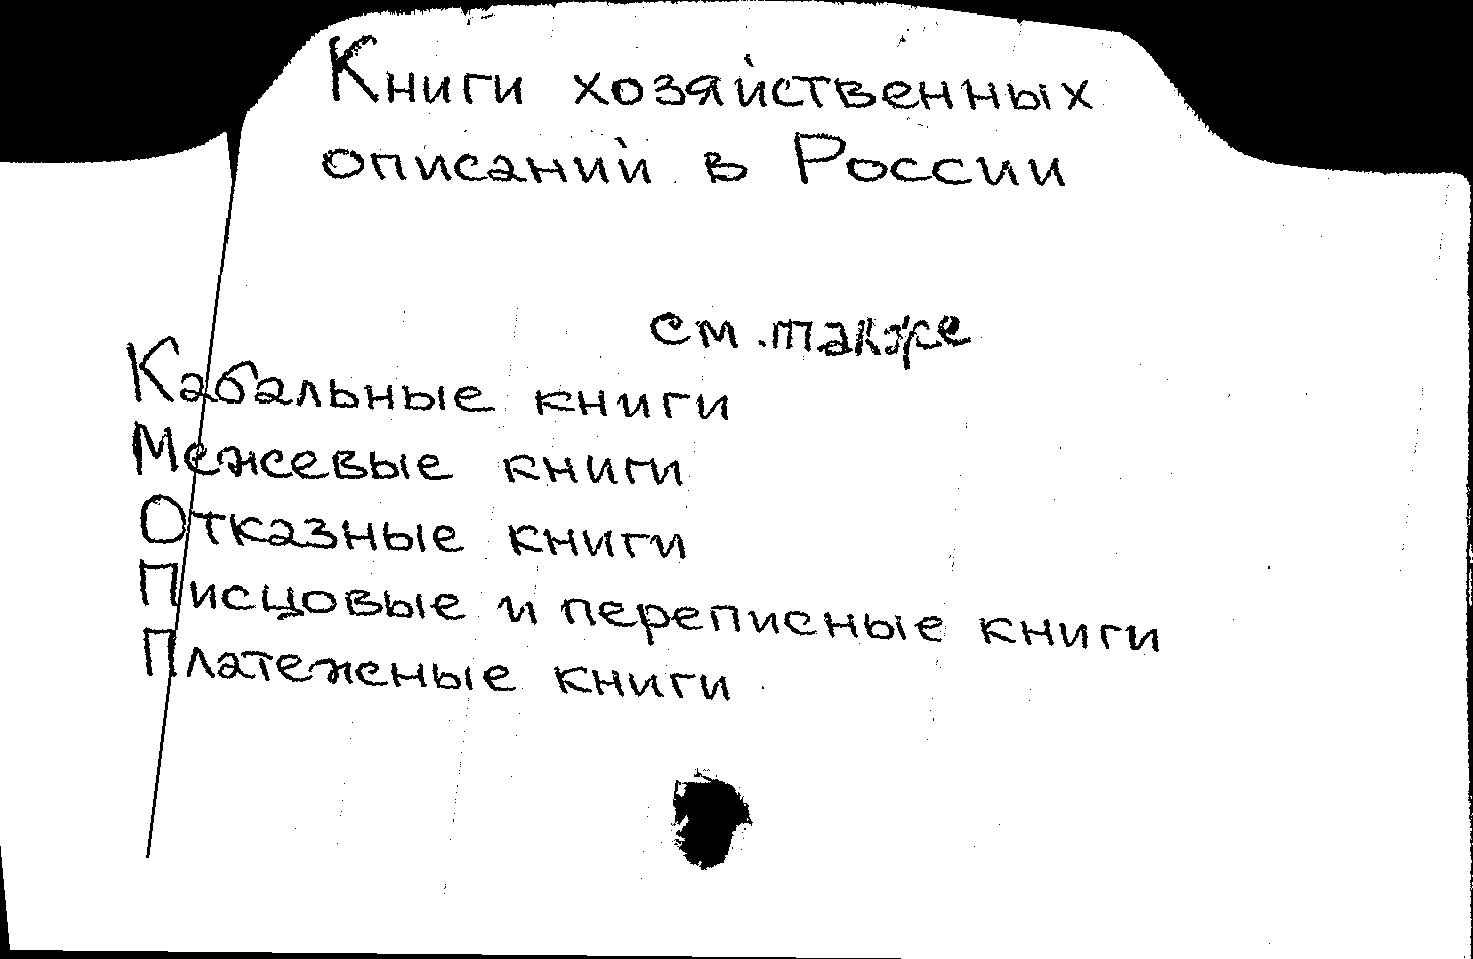 Книги хозяйственных
описаний в России
см. также
Кабальные книги
Межевые книги
Отказные книги
Писцовые и переписные книги
Платеженые книги